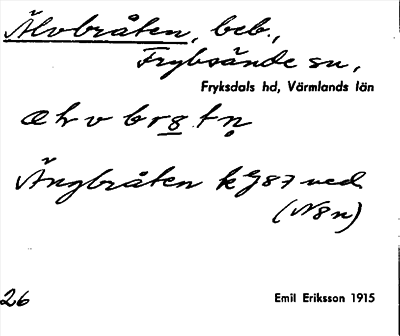 Älvbråten, beb.,
Fryksände sn,
Fryksdals hd, Värmlands län
Ängbråten k G87 ned
(N8n)
26
Emil Eriksson 1915